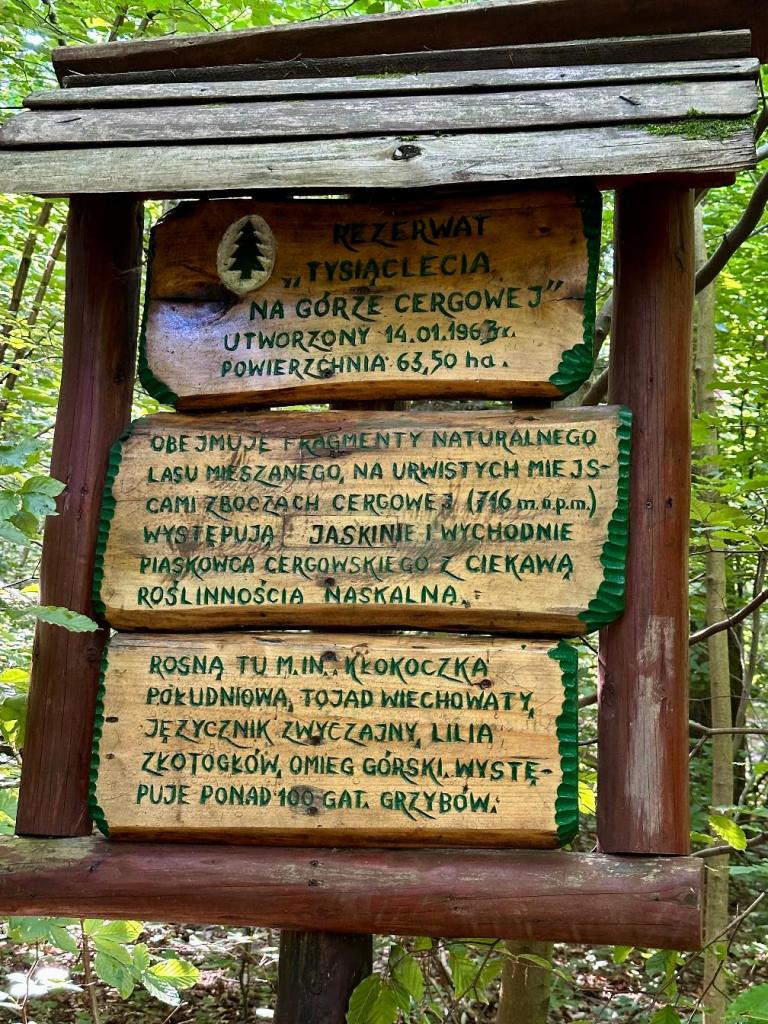 REZERWAT
„TYSIĄCLECIA
NA GÓRZE CERGOWEJ”
UTWORZONY 14.01.1963r.
POWIERZCHNIA 63,50 ha.
OBEJMUJE FRAGMENTY NATURALNEGO
LASU MIESZANEGO, NA URWISTYCH MIEJS-
CAMI ZBOCZACH CERGOWEJ (716 m.n.p.m.)
WYSTĘPUJĄ JASKINIE I WYCHODNIE
PIASKOWCA CERGOWSKIEGO Z CIEKAWĄ
ROŚLINNOŚCIĄ NASKALNĄ.
ROSNĄ TU M.IN. KŁOKOCZKA
POŁUDNIOWA, TOJAD WIECHOWATY,
JĘZYCZNIK ZWYCZAJNY, LILIA
ZŁOTOGŁÓW, OMIEG GÓRSKI. WYSTĘ-
PUJE PONAD 100 GAT. GRZYBÓW.